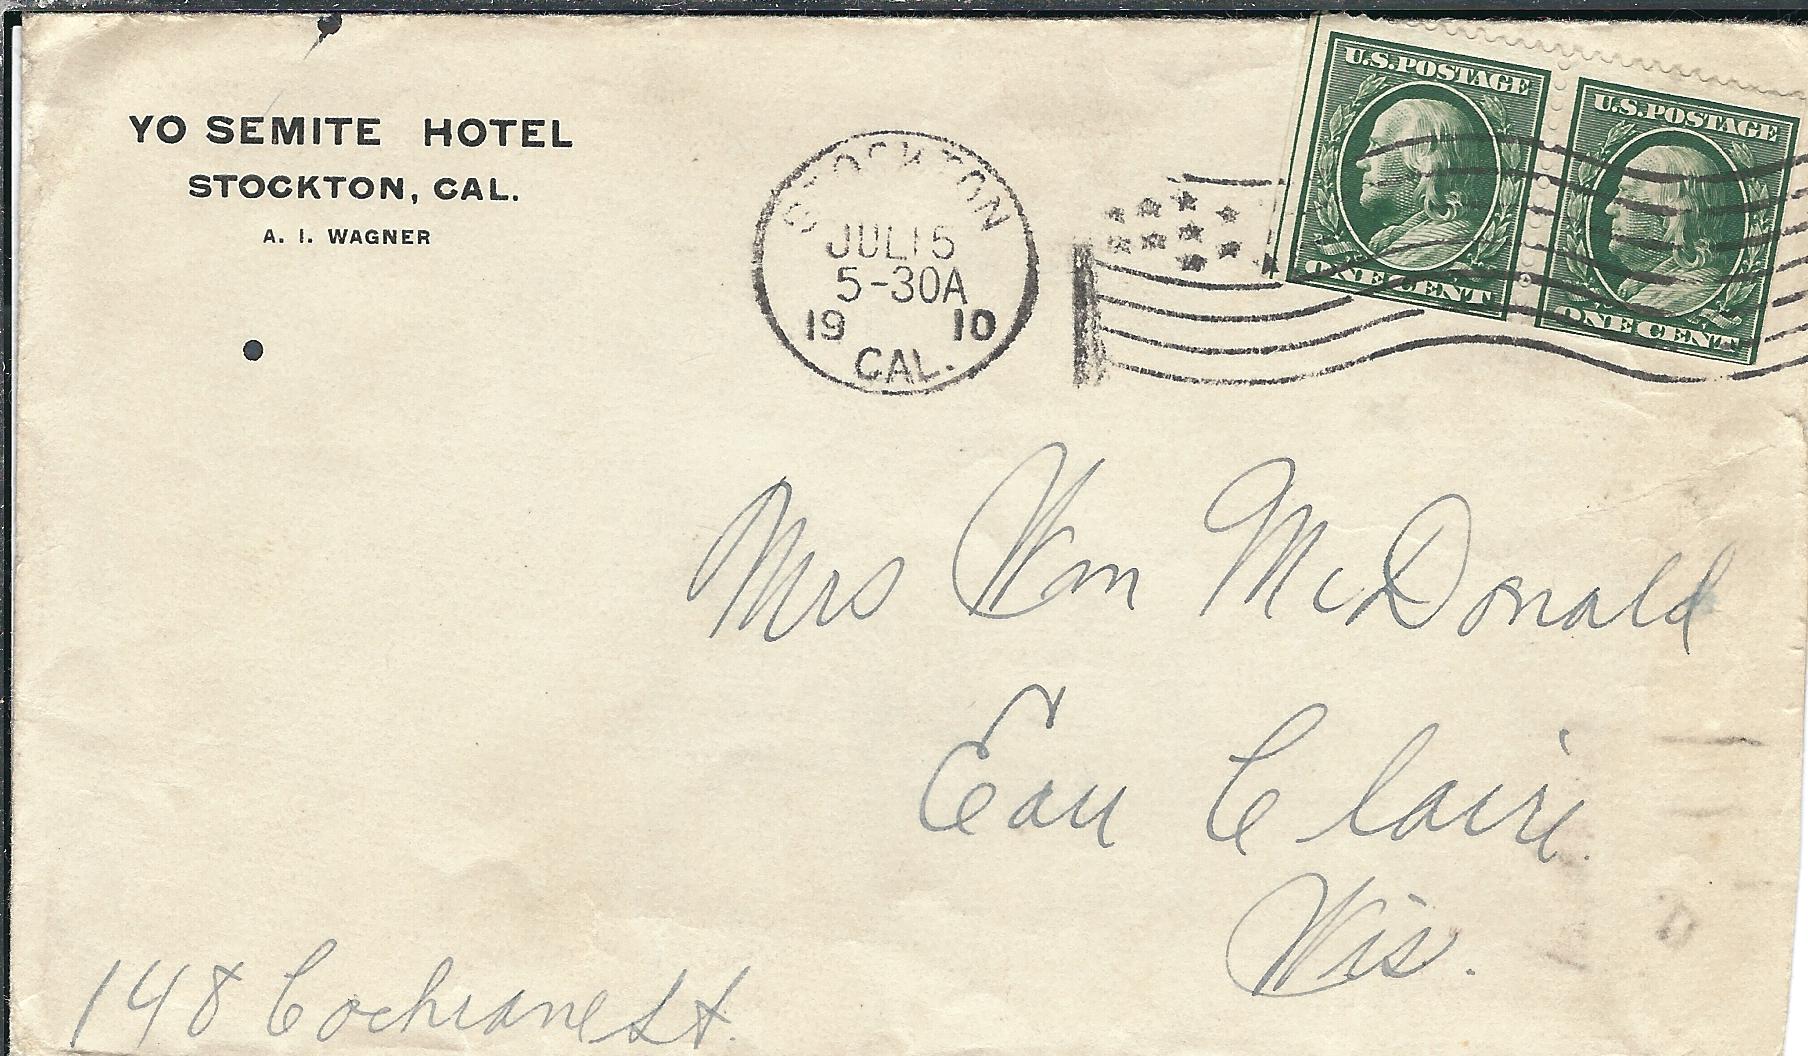 YO SEMITE HOTEL
STOCKTON, CAL.
A. I. WAGNER
STOCKTON
JUL 15
5-30A
19 10
CAL.
U.S. POSTAGE
ONE CENT
U.S. POSTAGE
ONE CENT
Mrs Wm McDonald
Eau Claire
Wis.
148 Cochrane St.